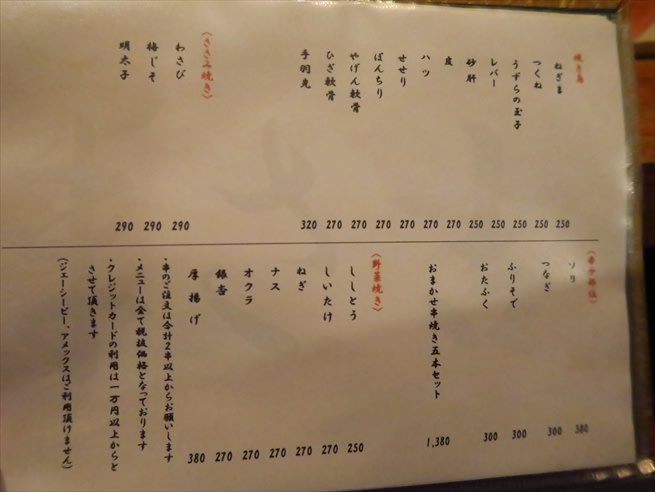 焼き鳥
ねぎま 250
つくね 250
うずらの玉子 250
レバー 250
砂肝 250
皮 270
ハツ 270
せせり 270
ぼんちり 270
やげん軟骨 270
ひざ軟骨 270
手羽先 320
(ささみ焼き)
わさび 290
梅じそ 290
明太子 290
(希少部位)
ソリ 380
つなぎ 300
ふりそで 300
おたふく 300
おまかせ串焼き五本セット 1,380
(野菜焼き)
ししとう 250
しいたけ 270
ねぎ 270
ナス 270
オクラ 270
銀杏 270
厚揚げ 380
・串のご注文は合計2串以上からお願いします
・メニューは全て税抜価格となっております
・クレジットカードの利用は一万円以上からと
させて頂きます
(ジェーシービー、アメックスはご利用頂けません)